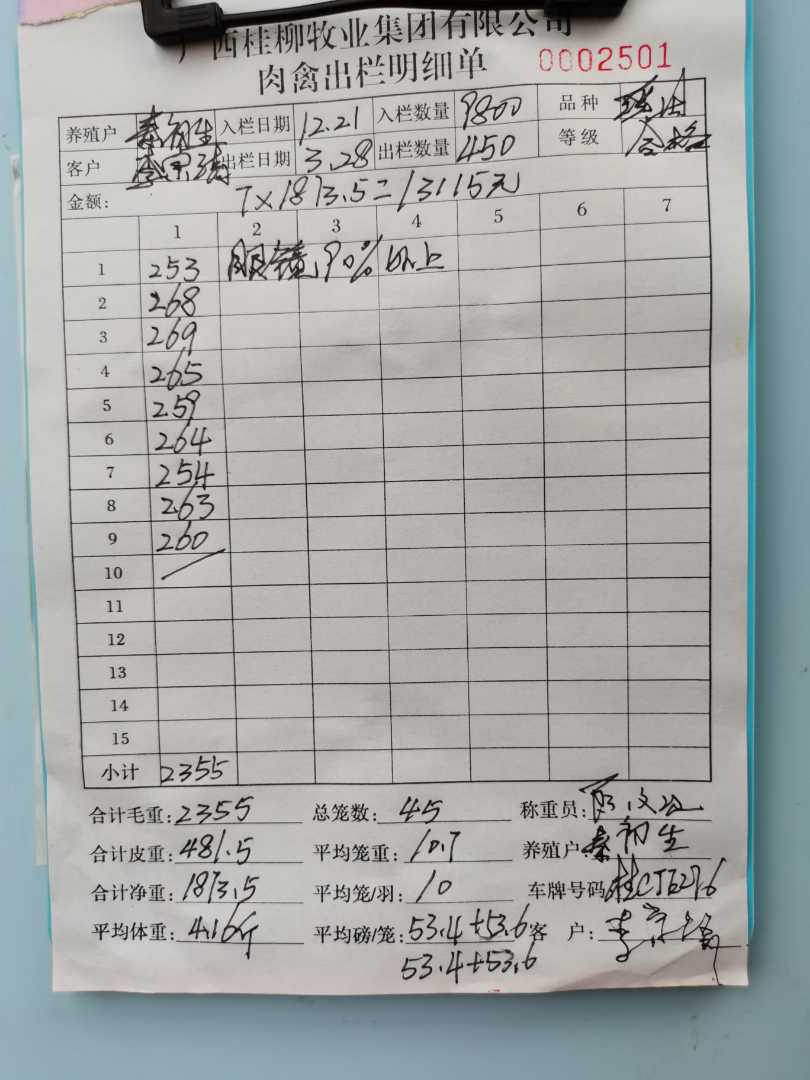 广西桂柳牧业集团有限公司
肉禽出栏明细单 0002501
养殖户 秦初生 入栏日期 12.21 入栏数量 9800 品种
客户 出栏日期 3.28 出栏数量 450 等级 合格
金额: 7×1873.5=13115元
1 2 3 4 5 6 7
1 253 眼镜90%以上
2 268
3 269
4 265
5 259
6 264
7 254
8 263
9 260
10
11
12
13
14
15
小计 2355
合计毛重: 2355 总笼数: 45 称重员:
合计皮重: 481.5 平均笼重: 10.7 养殖户: 秦初生
合计净重: 1873.5 平均笼/羽: 10 车牌号码
平均体重: 4.16斤 平均磅/笼: 53.4+53.6 客户:
53.4+53.6